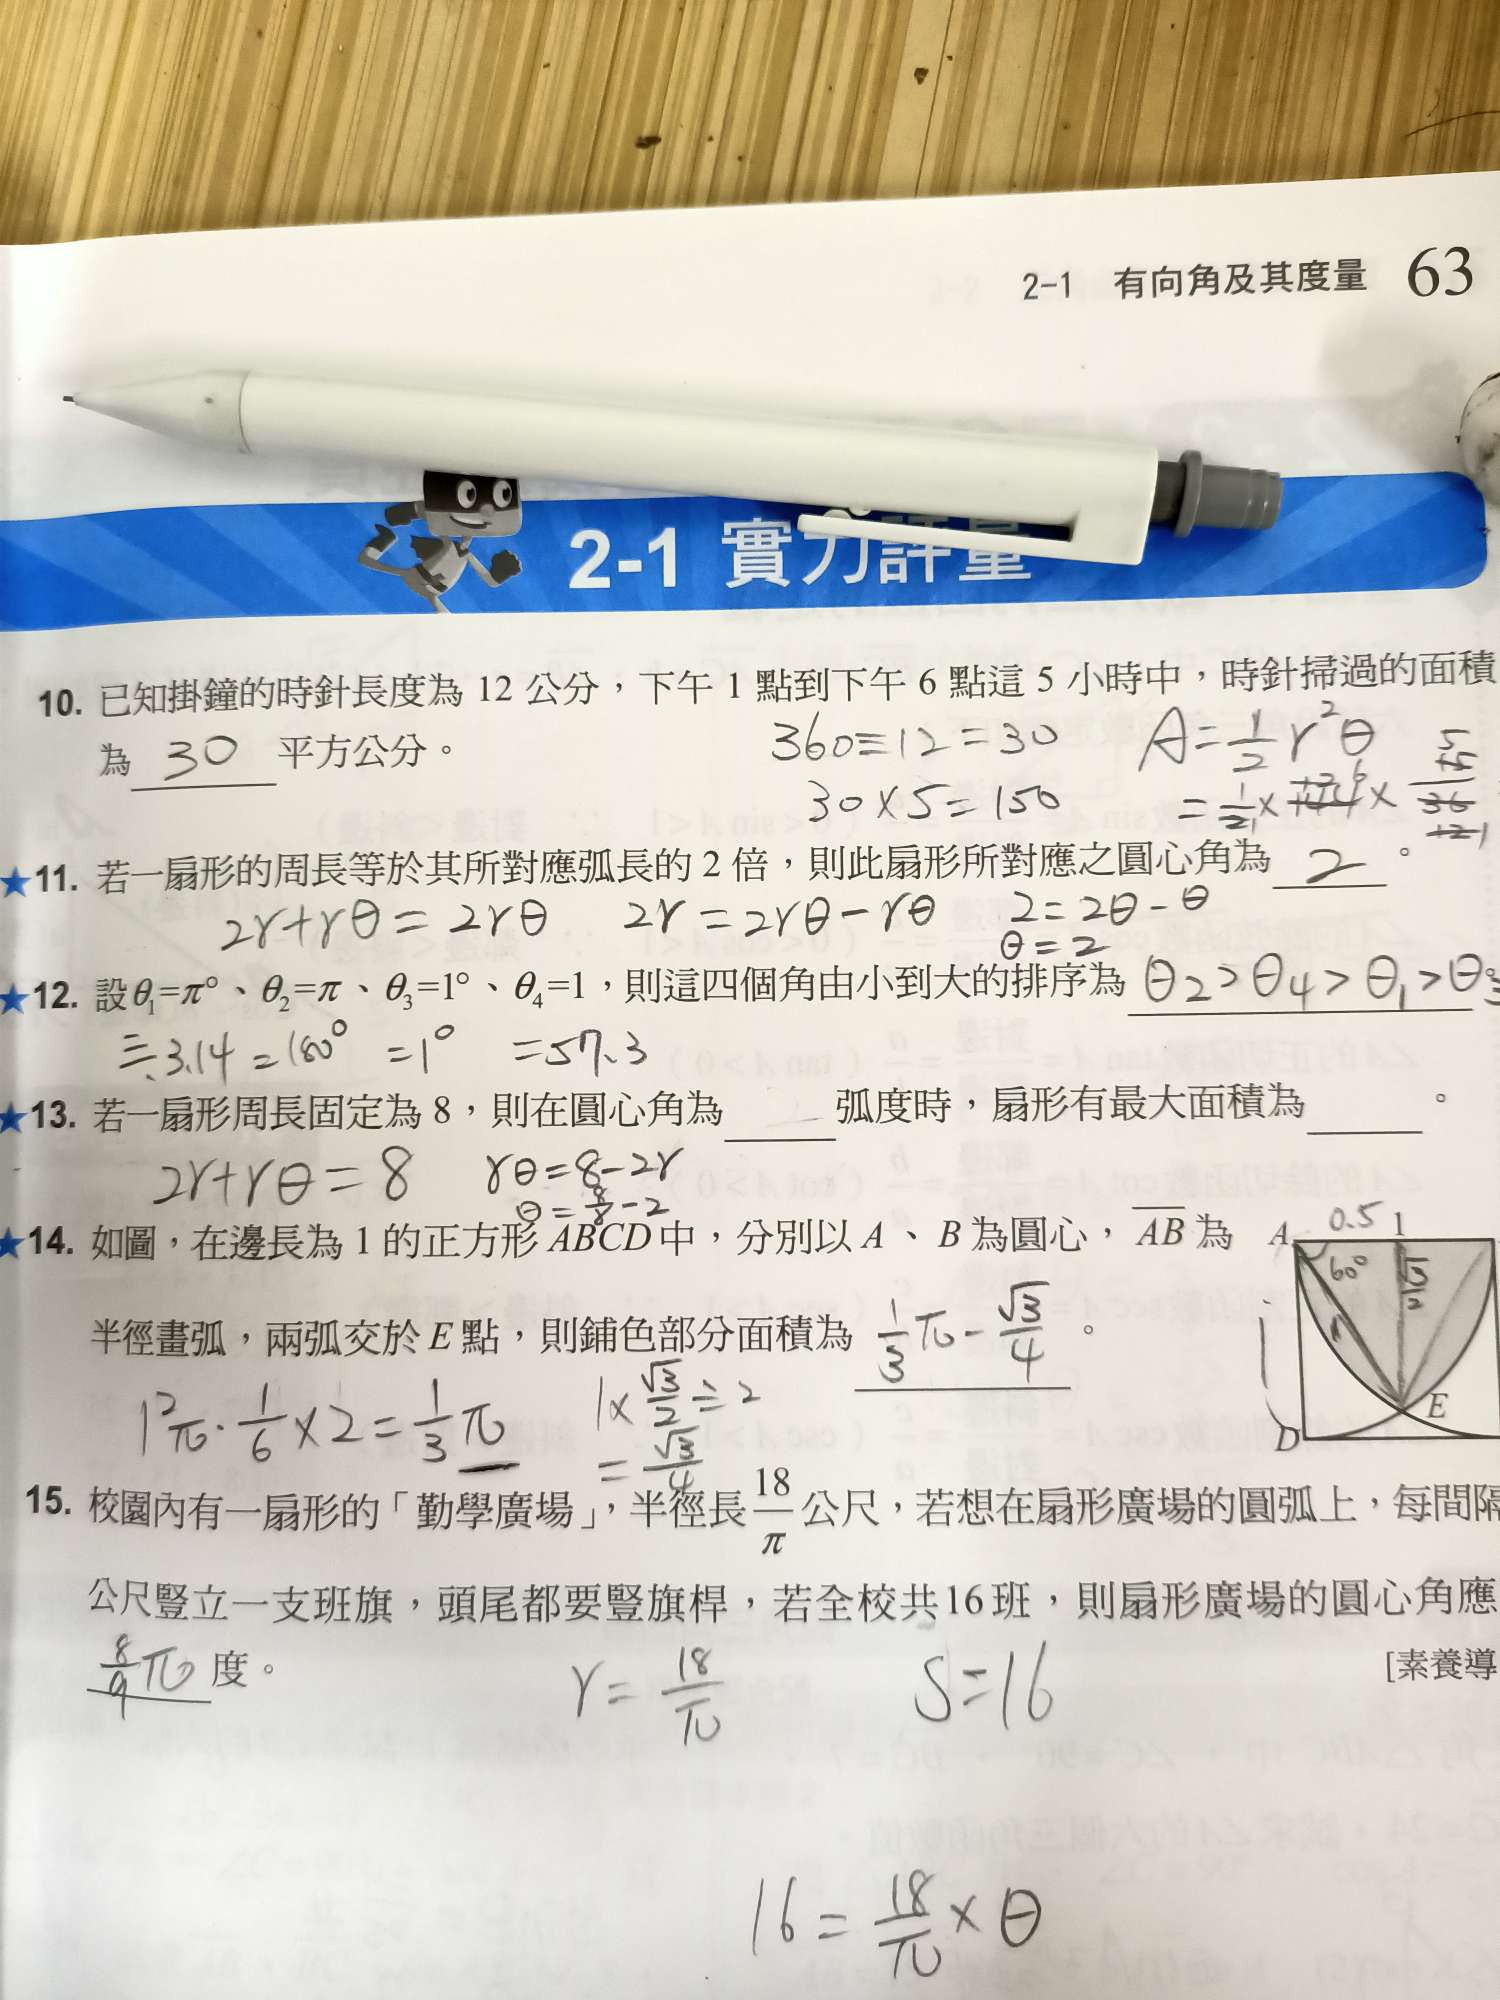 2-1 有向角及其度量 63
2-1 實力評量
10. 已知掛鐘的時針長度為 12 公分，下午 1 點到下午 6 點這 5 小時中，時針掃過的面積
為 30 平方公分。
360÷12=30
30×5=150
A=1/2 r²θ
=1/2 ×
★11. 若一扇形的周長等於其所對應弧長的 2 倍，則此扇形所對應之圓心角為 2 。
2r+rθ=2rθ 2r=2rθ-rθ 2=2θ-θ
θ=2
★12. 設θ₁=π°、θ₂=π、θ₃=1°、θ₄=1，則這四個角由小到大的排序為 θ2>θ4>θ1>θ3
≒3.14 =180° =1° =57.3
★13. 若一扇形周長固定為 8，則在圓心角為 弧度時，扇形有最大面積為 。
2r+rθ=8 rθ=8-2r
θ=8/8-2
★14. 如圖，在邊長為 1 的正方形 ABCD 中，分別以 A、B 為圓心，AB 為
半徑畫弧，兩弧交於 E 點，則鋪色部分面積為 1/3π-√3/4 。
1²π·1/6×2=1/3π
1×√3/2÷2
=√3/4
A 0.5 1
60° √3/2
1 1
E
D
15. 校園內有一扇形的「勤學廣場」，半徑長 18/π 公尺，若想在扇形廣場的圓弧上，每間隔
公尺豎立一支班旗，頭尾都要豎旗桿，若全校共16班，則扇形廣場的圓心角應
8/9π 度。
[素養導
r=18/π S=16
16=18/π×θ